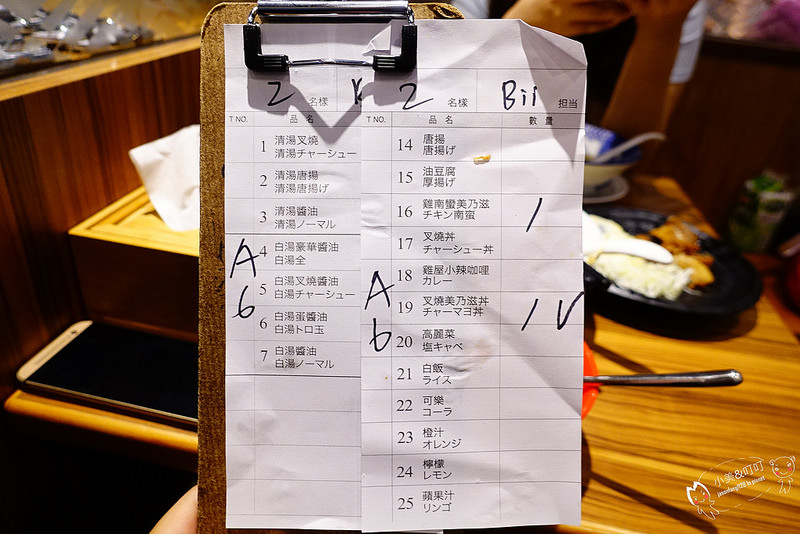 2 名様
T NO. 品名
1 清湯叉燒
清湯チャーシュー
2 清湯唐揚
清湯唐揚げ
3 清湯醬油
清湯ノーマル
4 白湯豪華醬油
白湯全
5 白湯叉燒醬油
白湯チャーシュー
6 白湯蛋醬油
白湯トロ玉
7 白湯醬油
白湯ノーマル
A
6
2 名様 Bil 担当
T NO. 品名 數量
14 唐揚
唐揚げ
15 油豆腐
厚揚げ
16 雞南蠻美乃滋 /
チキン南蛮
17 叉燒丼
チャーシュー丼
18 雞屋小辣咖哩
カレー
19 叉燒美乃滋丼 / V
チャーマヨ丼
20 高麗菜
塩キャベ
21 白飯
ライス
22 可樂
コーラ
23 橙汁
オレンジ
24 檸檬
レモン
25 蘋果汁
リンゴ
A
6
小美&叮叮